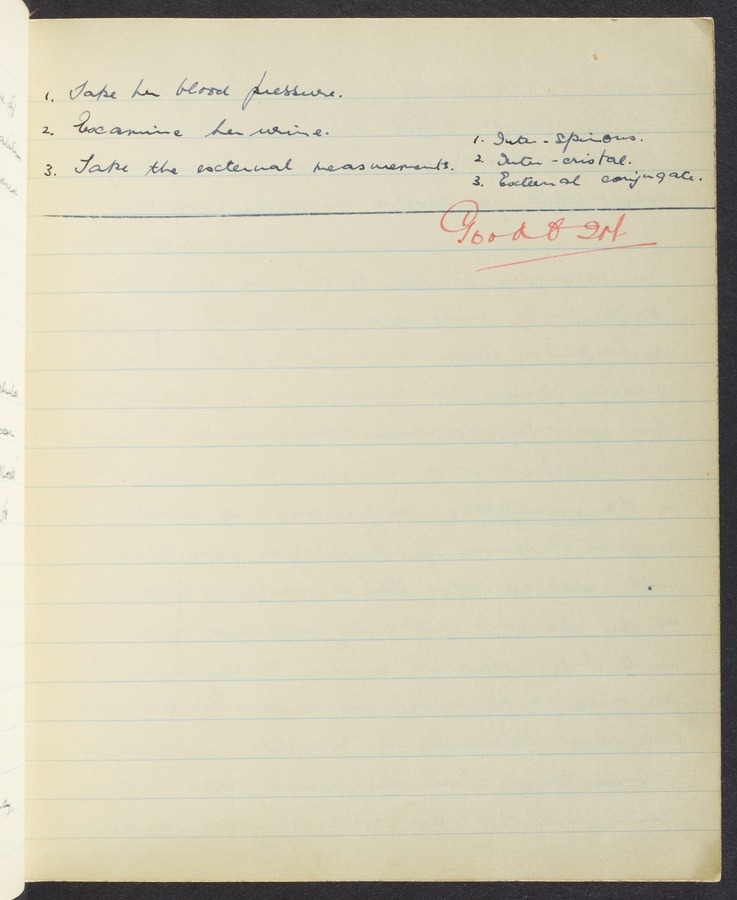 1. Take her blood pressure.
2. Examine her urine.
3. Take the external measurements.
1. Inter-spinous.
2. Inter-cristal.
3. External conjugate.
Good